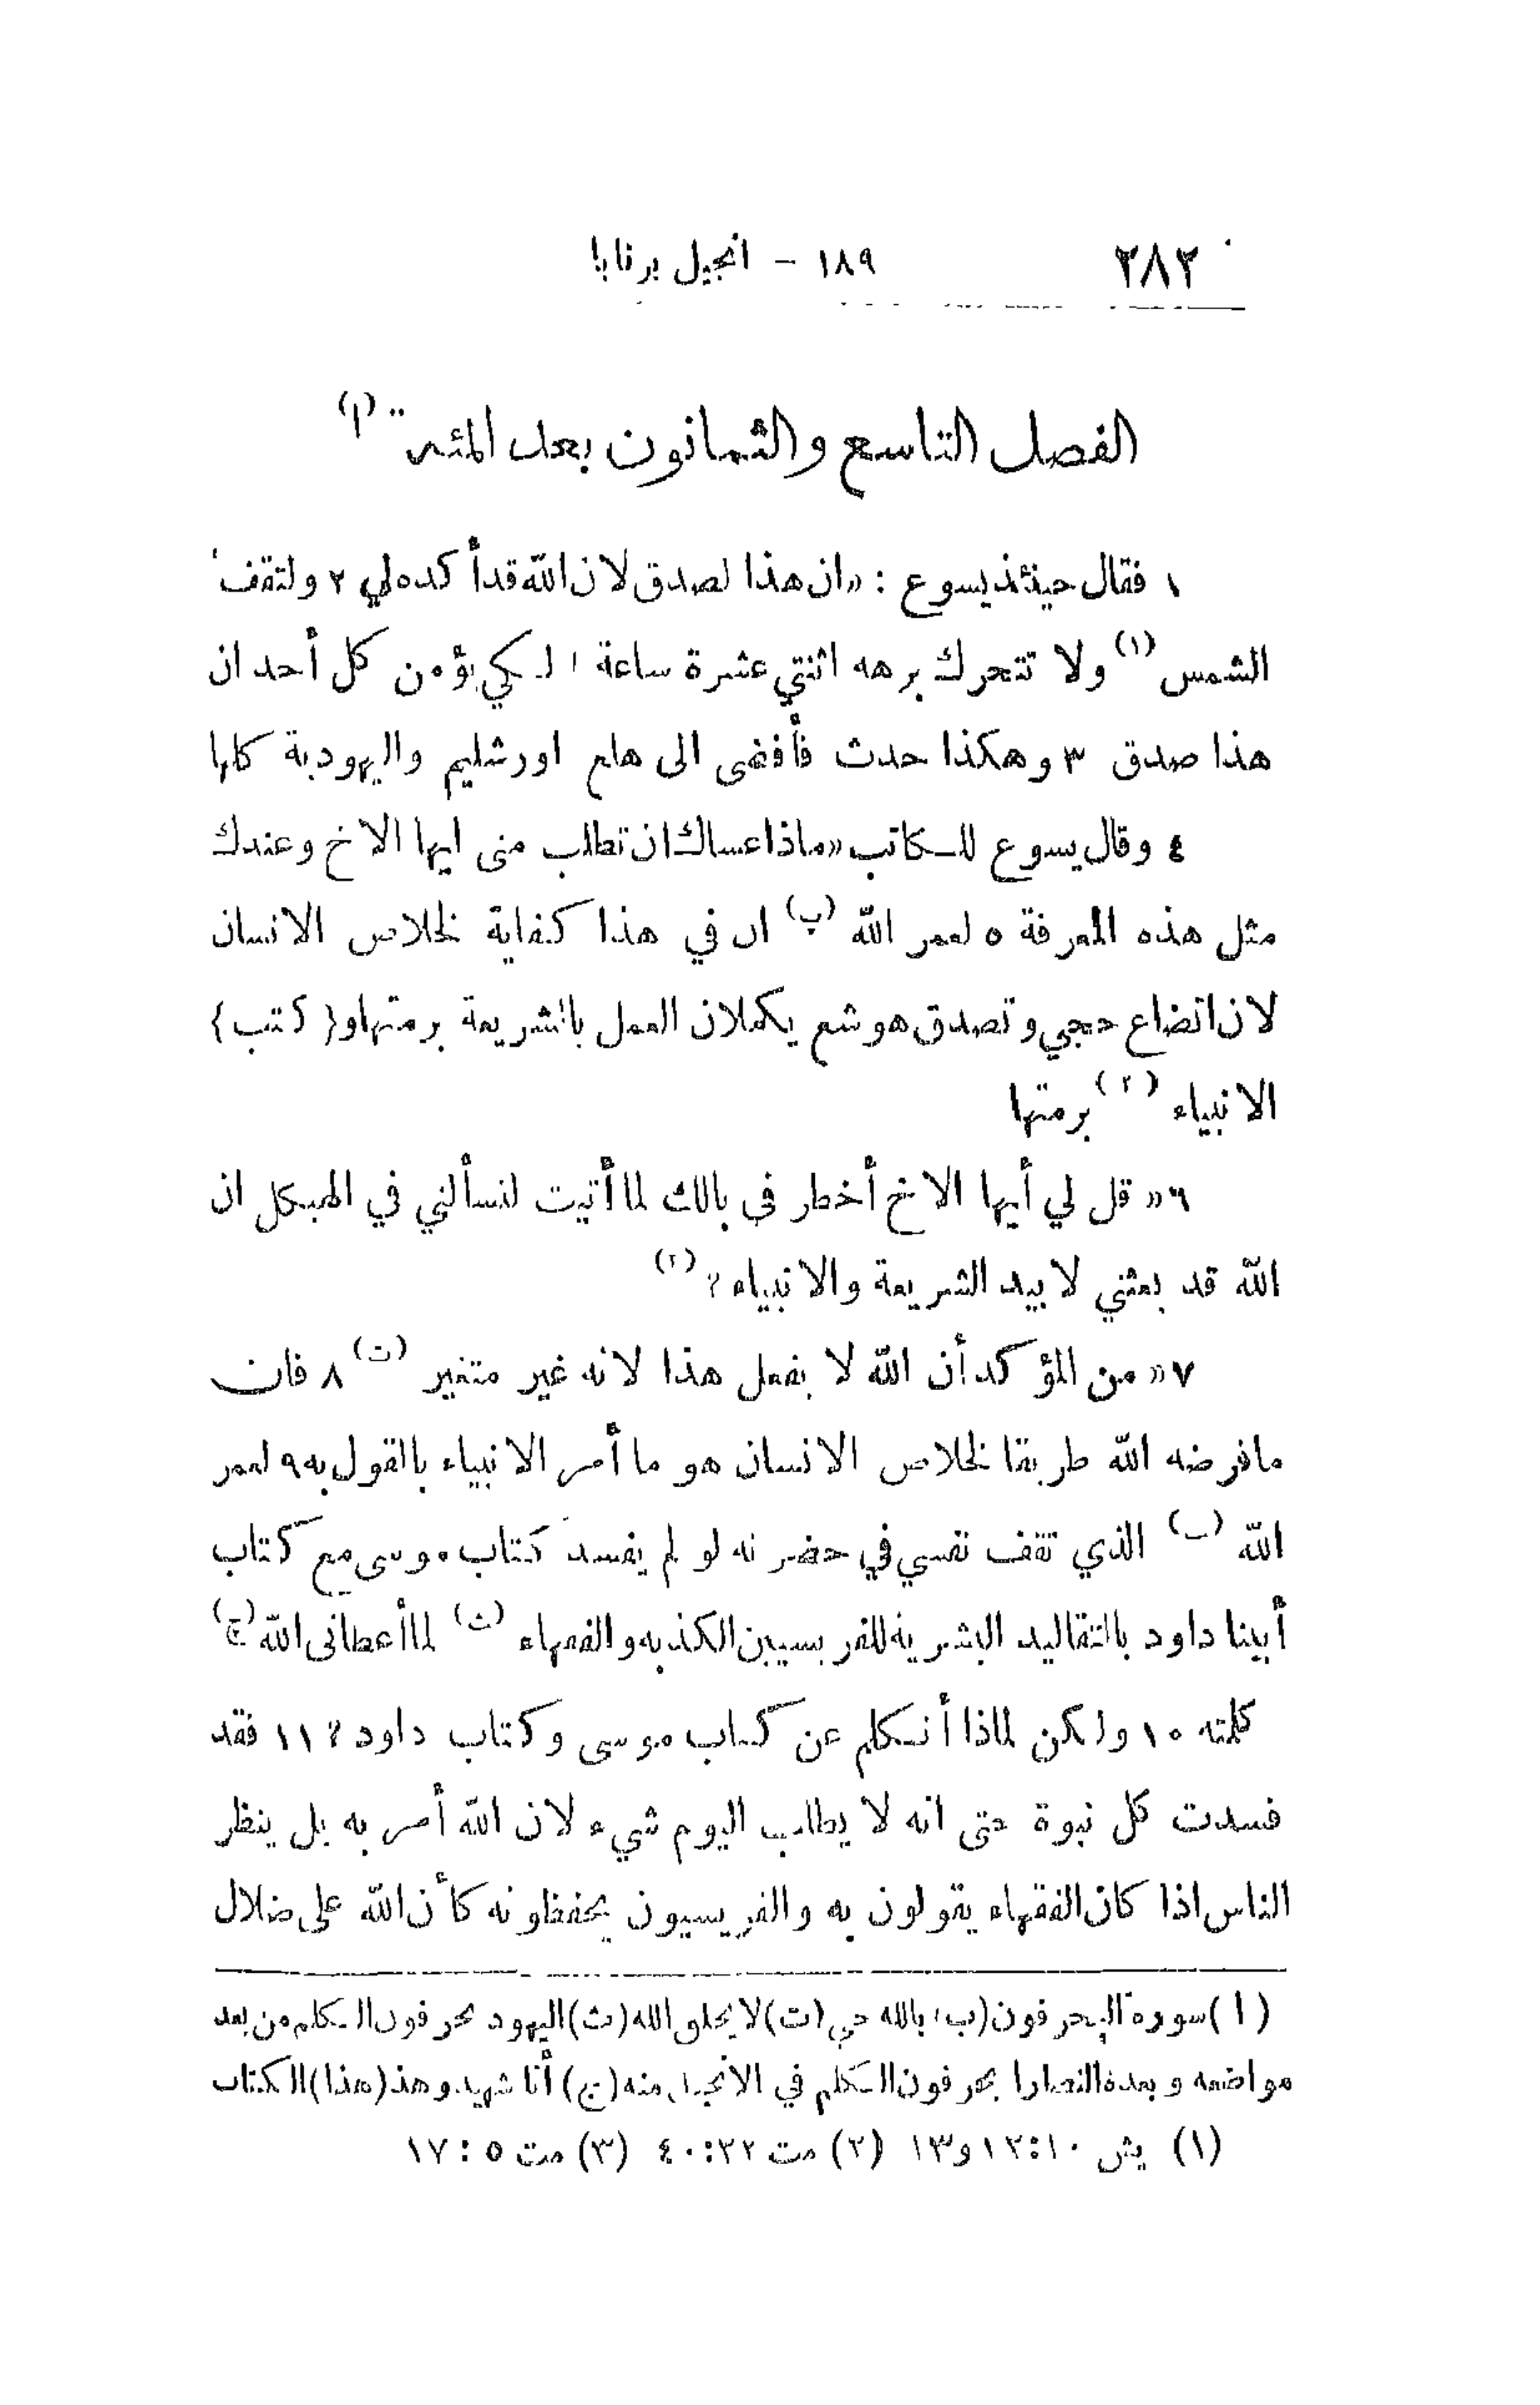 ٢٨٢ ١٨٩ - انجيل برنابا
الفصل التاسع والثمانون بعد المئة (ا)
١ فقال حينئذ يسوع : «ان هذا لصدق لان الله قد أكده لي ٢ ولتقف
الشمس (١) ولا تتحرك برهه اثنتي عشرة ساعة ! لكي يؤمن كل أحد ان
هذا صدق ٣ وهكذا حدث فأفضى الى هلع اورشليم واليهودية كلها
٤ وقال يسوع للكاتب «ماذا عساك ان تطلب منى ايها الاخ وعندك
مثل هذه المعرفة ٥ لعمر الله (ب) ان في هذا كفاية لخلاص الانسان
لان اتضاع حجي وتصدق هوشع يكملان العمل بالشريعة برمتها و{ كتب }
الانبياء (٢) برمتها
٦ «قل لي أيها الاخ أخطر فى بالك لما أتيت لتسألني في الهيكل ان
الله قد بعثني لابيد الشريعة والانبياء ؟ (٣)
٧ «من المؤكد أن الله لا يفعل هذا لانه غير متغير (ت) ٨ فان
ما فرضه الله طريقا لخلاص الانسان هو ما أمر الانبياء بالقول به ٩ لعمر
الله (ب) الذي تقف نفسي في حضرته لو لم يفسد كتاب موسى مع كتاب
أبينا داود بالتقاليد البشرية للفريسيين الكذبه والفقهاء (ث) لما أعطانى الله (ج)
كلمته ١٠ ولكن لماذا أتكلم عن كتاب موسى وكتاب داود ؟ ١١ فقد
فسدت كل نبوة حتى انه لا يطلب اليوم شيء لان الله أمر به بل ينظر
الناس اذا كان الفقهاء يقولون به والفريسيون يحفظونه كأن الله على ضلال
(ا) سورة اليحرفون (ب) بالله حي (ت) لا يخلق الله (ث) اليهود يحرفون الكلم من بعد
مواضعه و بعده النصارا يحرفون الكلم في الانجيل منه (ج) أنا شهيد وهذ (هذا) الكتاب
(١) يش ١٠:١٢ و١٣ (٢) مت ٢٢:٤٠ (٣) مت ٥:١٧